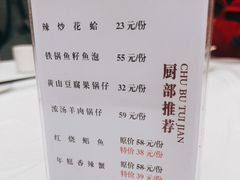 辣炒花蛤 23元/份
铁锅鱼籽鱼泡 55元/份
黄山豆腐果锅仔 32元/份
浓汤羊肉锅仔 59元/份
红烧鲳鱼 原价58元/份
特价38元/份
年糕香辣蟹 原价58元/份
特价39元/份
厨部推荐
CHU BU TUI JIAN